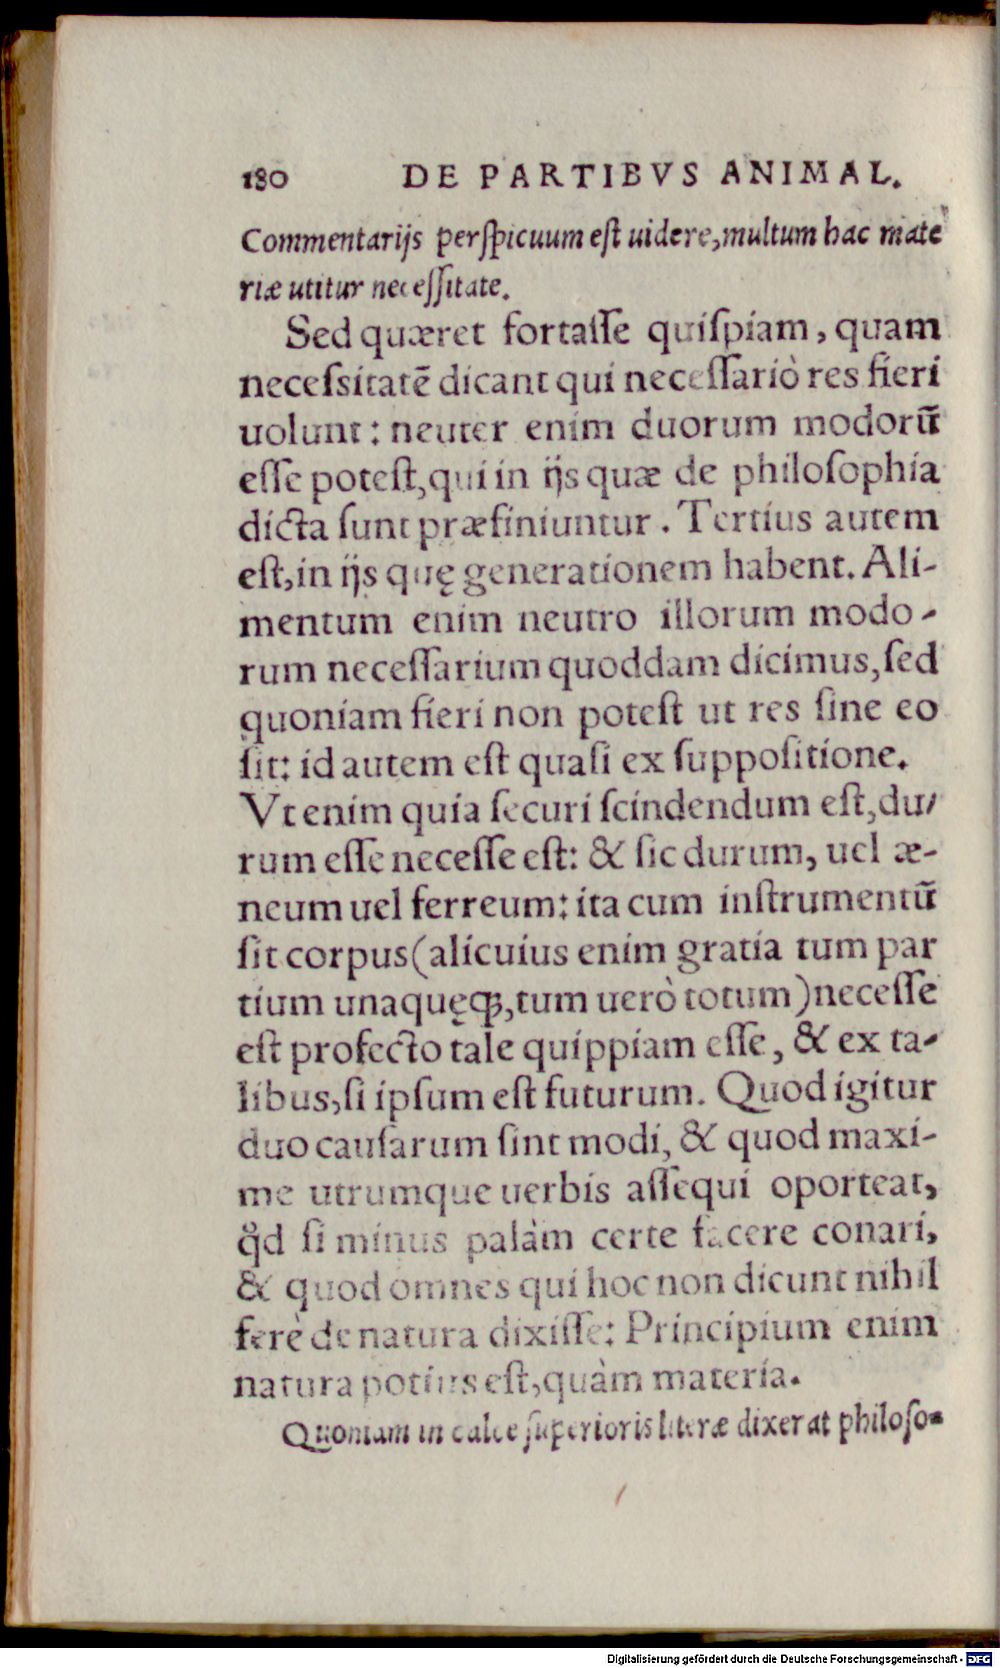 180 DE PARTIBVS ANIMAL.
Commentarijs perſpicuum eſt uidere, multum hac mate
riæ utitur neceſſitate.
Sed quæret fortaſſe quiſpiam, quam
neceſsitatē dicant qui neceſſariò res fieri
uolunt: neuter enim duorum modorū
eſſe poteſt, qui in ijs quæ de philoſophia
dicta ſunt præfiniuntur. Tertius autem
eſt, in ijs quę generationem habent. Ali-
mentum enim neutro illorum modo-
rum neceſſarium quoddam dicimus, ſed
quoniam fieri non poteſt ut res ſine eo
ſit: id autem eſt quaſi ex ſuppoſitione.
Vt enim quia ſecuri ſcindendum eſt, du-
rum eſſe neceſſe eſt: & ſic durum, uel æ-
neum uel ferreum: ita cum inſtrumentū
ſit corpus (alicuius enim gratia tum par
tium unaquęq;, tum uerò totum) neceſſe
eſt profecto tale quippiam eſſe, & ex ta-
libus, ſi ipſum eſt futurum. Quod igitur
duo cauſarum ſint modi, & quod maxi-
me utrumque uerbis aſſequi oporteat,
qd̊ ſi minus palàm certe facere conari,
& quod omnes qui hoc non dicunt nihil
ferè de natura dixiſſe: Principium enim
natura potius eſt, quàm materia.
Quoniam in calce ſuperioris literæ dixerat philoſo-
Digitalisierung gefördert durch die Deutsche Forschungsgemeinschaft - DFG